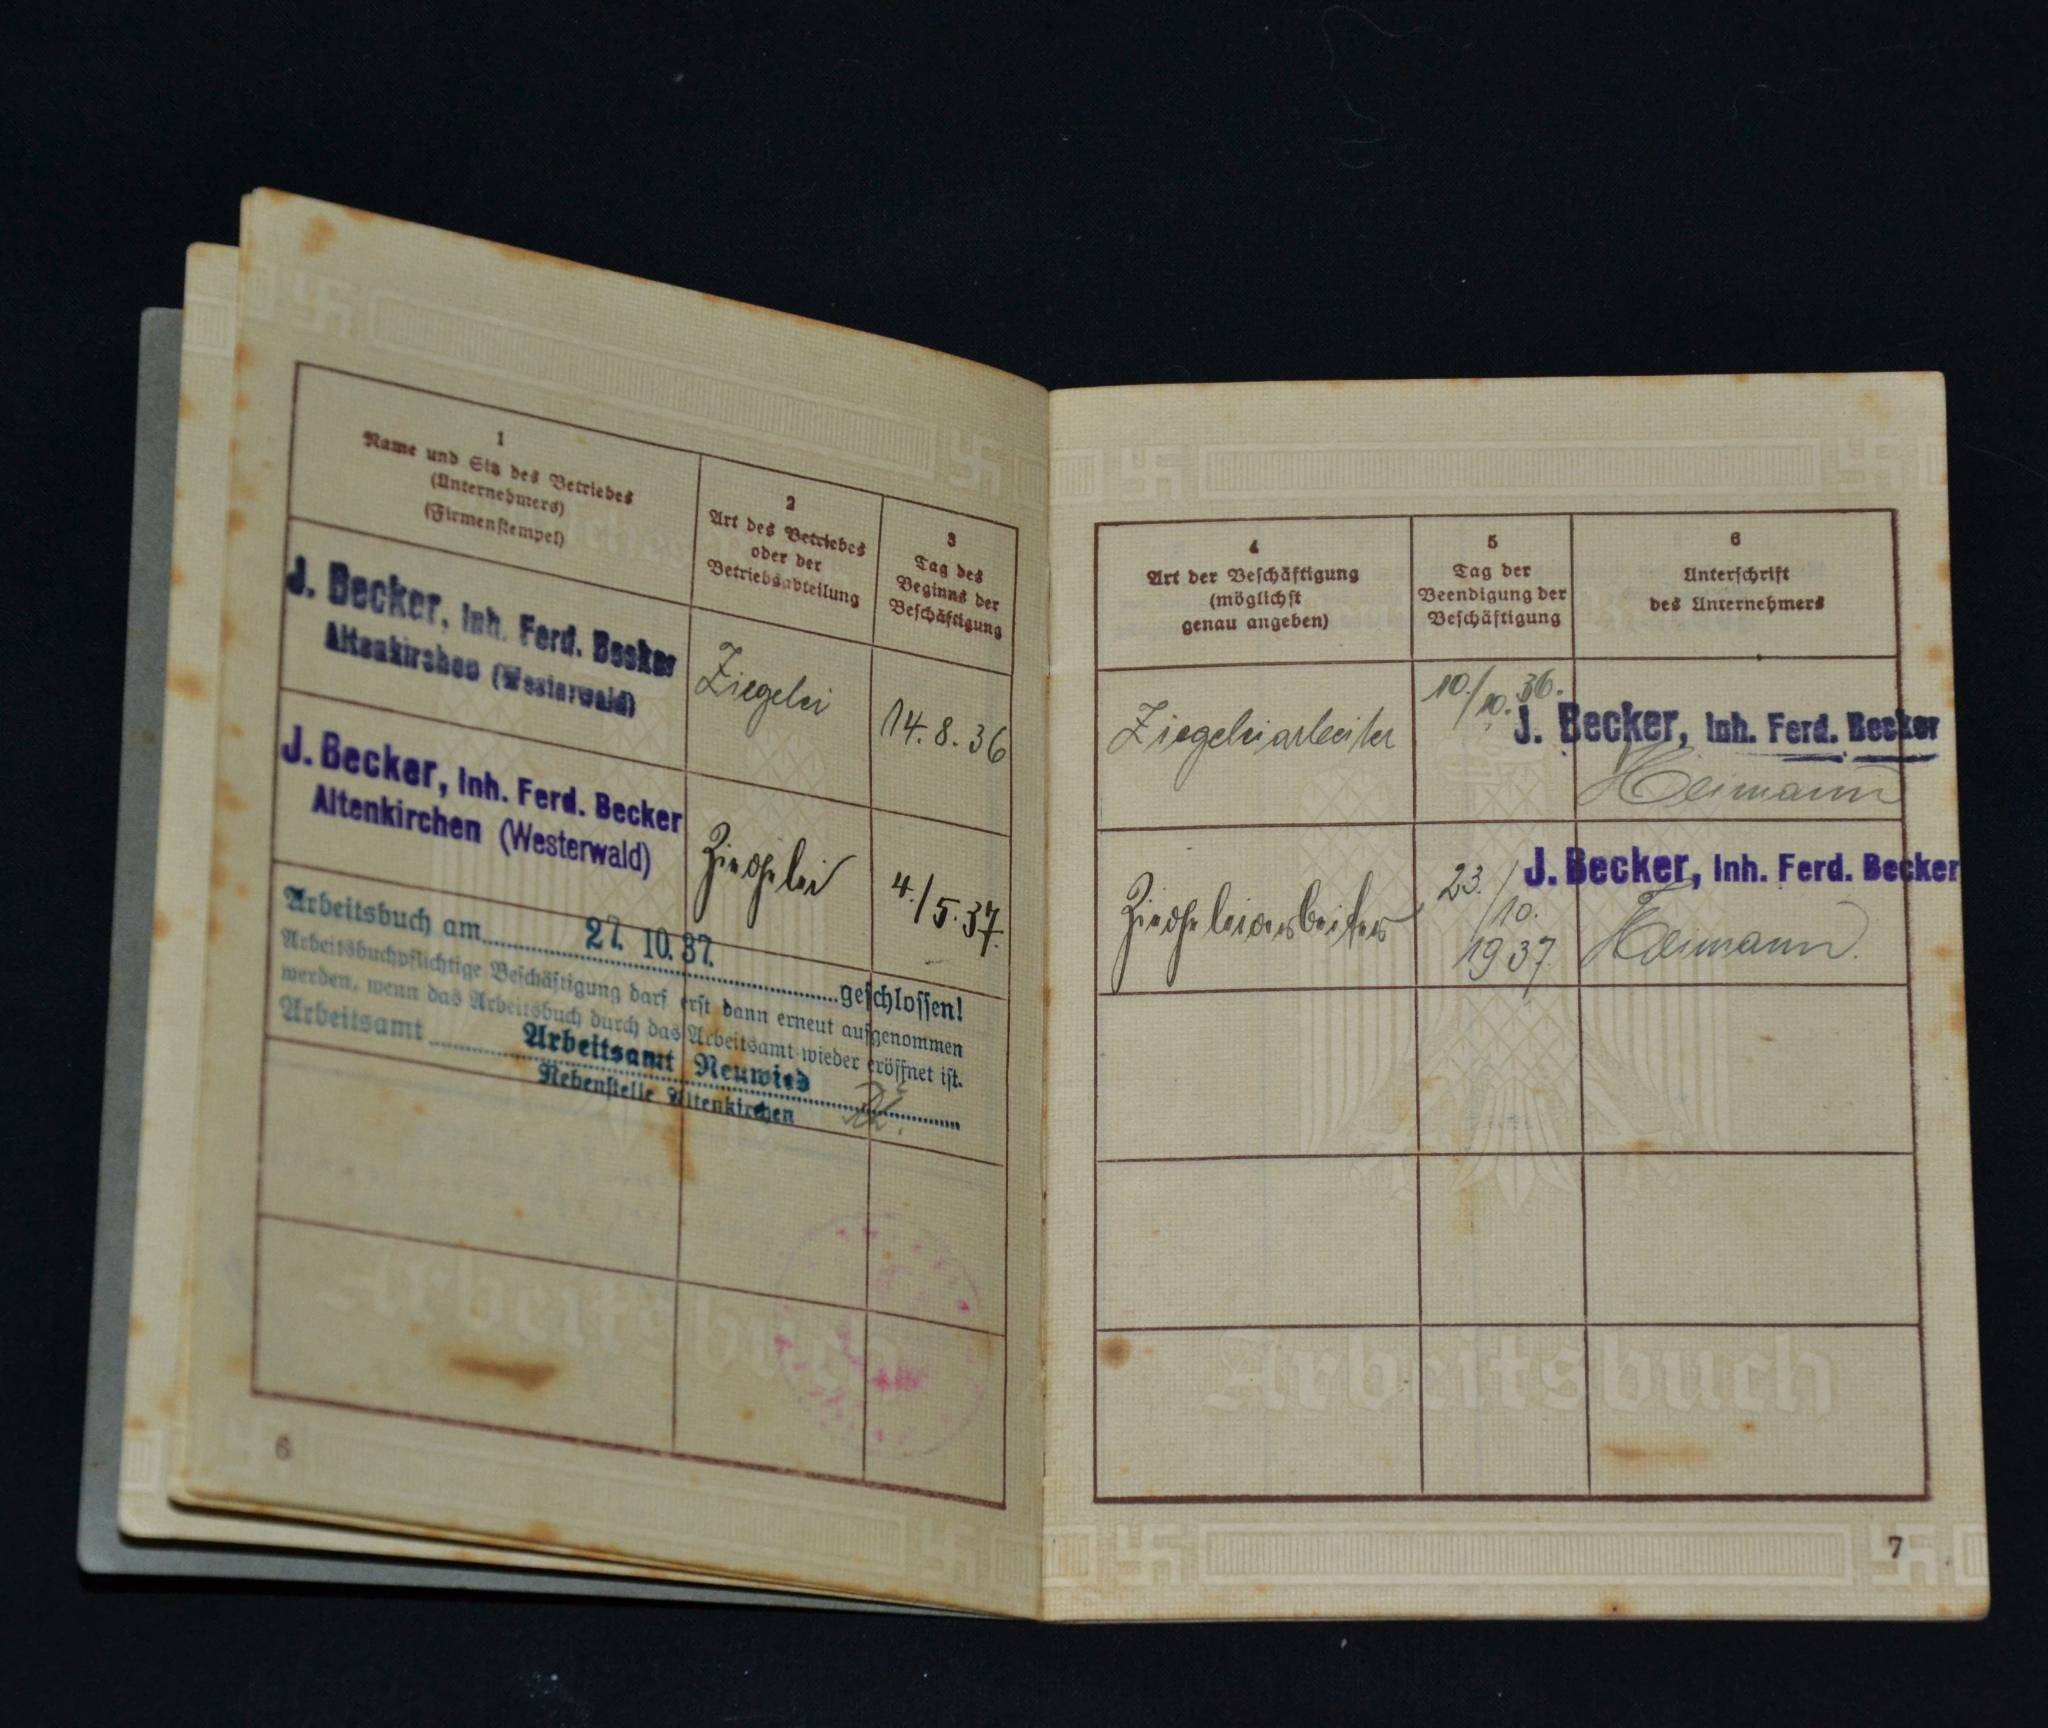 1
Name und Sitz des Betriebes
(Unternehmers)
(Firmenstempel)
2
Art des Betriebes
oder der
Betriebsabteilung
3
Tag des
Beginns der
Beschäftigung
J. Becker, Inh. Ferd. Becker
Altenkirchen (Westerwald)
Ziegelei
14. 8. 36
J. Becker, Inh. Ferd. Becker
Altenkirchen (Westerwald)
Ziegelei
4./5. 37.
Arbeitsbuch am 27. 10. 37. geschlossen!
Arbeitsbuchpflichtige Beschäftigung darf erst dann erneut aufgenommen
werden, wenn das Arbeitsbuch durch das Arbeitsamt wieder eröffnet ist.
Arbeitsamt Arbeitsamt Neuwied
Nebenstelle Altenkirchen
Arbeitsbuch
6
4
Art der Beschäftigung
(möglichst
genau angeben)
5
Tag der
Beendigung der
Beschäftigung
6
Unterschrift
des Unternehmers
Ziegeleiarbeiter
10./10. 36.
J. Becker, Inh. Ferd. Becker
Heimann
Ziegeleiarbeiter
23./10.
1937.
J. Becker, Inh. Ferd. Becker
Heimann.
Arbeitsbuch
7